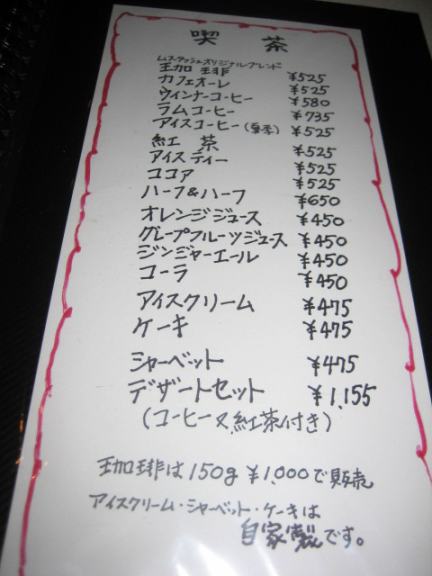 喫茶
ムスタッシュオリジナルブレンド
珈琲 ¥525
カフェオーレ ¥525
ウィンナーコーヒー ¥580
ラムコーヒー ¥735
アイスコーヒー(夏季) ¥525
紅茶 ¥525
アイスティー ¥525
ココア ¥525
ハーフ&ハーフ ¥650
オレンジジュース ¥450
グレープフルーツジュース ¥450
ジンジャーエール ¥450
コーラ ¥450
アイスクリーム ¥475
ケーキ ¥475
シャーベット ¥475
デザートセット ¥1,155
(コーヒー又紅茶付き)
珈琲は150g ¥1,000で販売
アイスクリーム・シャーベット・ケーキは
自家製です。